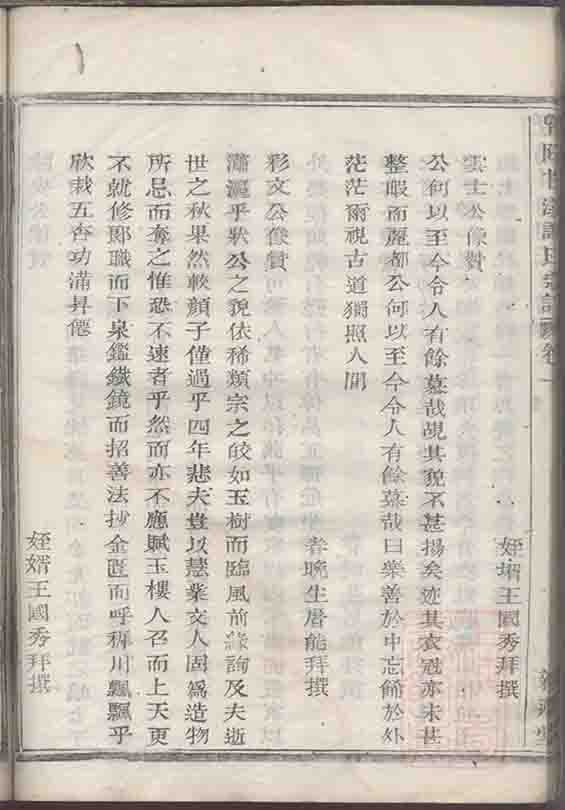 姪壻王國秀拜撰
雲士公像贊
公何以至今令人有餘慕哉覘其貌不甚揚矣迹其衣冠亦未甚
整暇而麗都公何以至今令人有餘慕哉曰樂善於中忘飾於外
茫茫爾視古道獨照人間
眷晚生曆能拜撰
彩文公像贊
瀟灑乎狀公之貌依稀類宗之皎如玉樹而臨風前緣詢及夫逝
世之秋果然較顏子僅過乎四年悲夫豈以慧業文人固爲造物
所忌而奪之惟恐不速者乎然而亦不應賦玉樓人召而上天更
不就修郎職而下泉鑑鐵鏡而招善法抄金匱而呼稚川飄飄乎
欣栽五杏功滿昇僊
姪婿王國秀拜撰